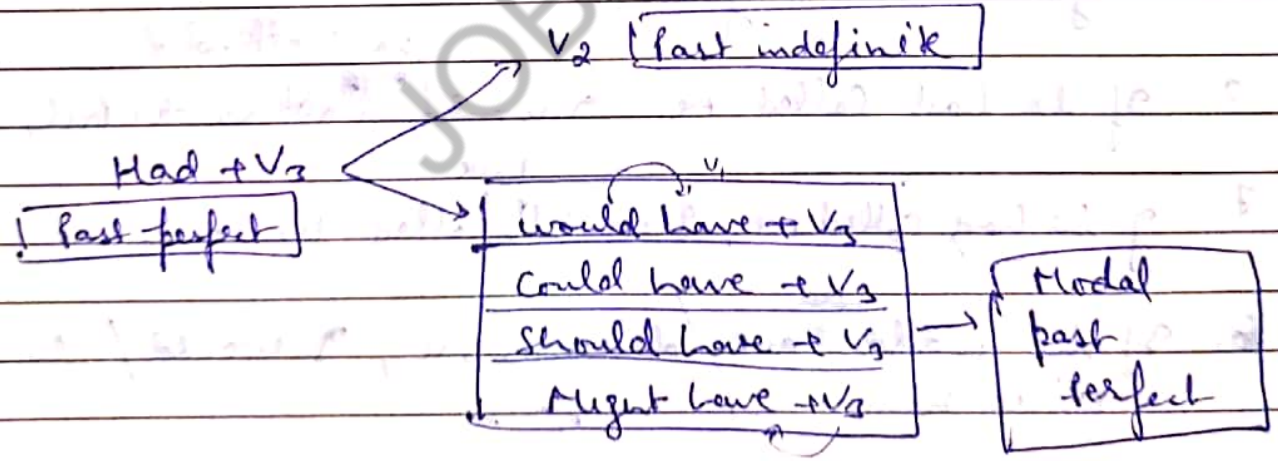 JOB
V2 Past indefinite
Had + V3
Past perfect
V1
Would have + V3
Could have + V3
Should have + V3
Might have + V3
Modal
past
perfect